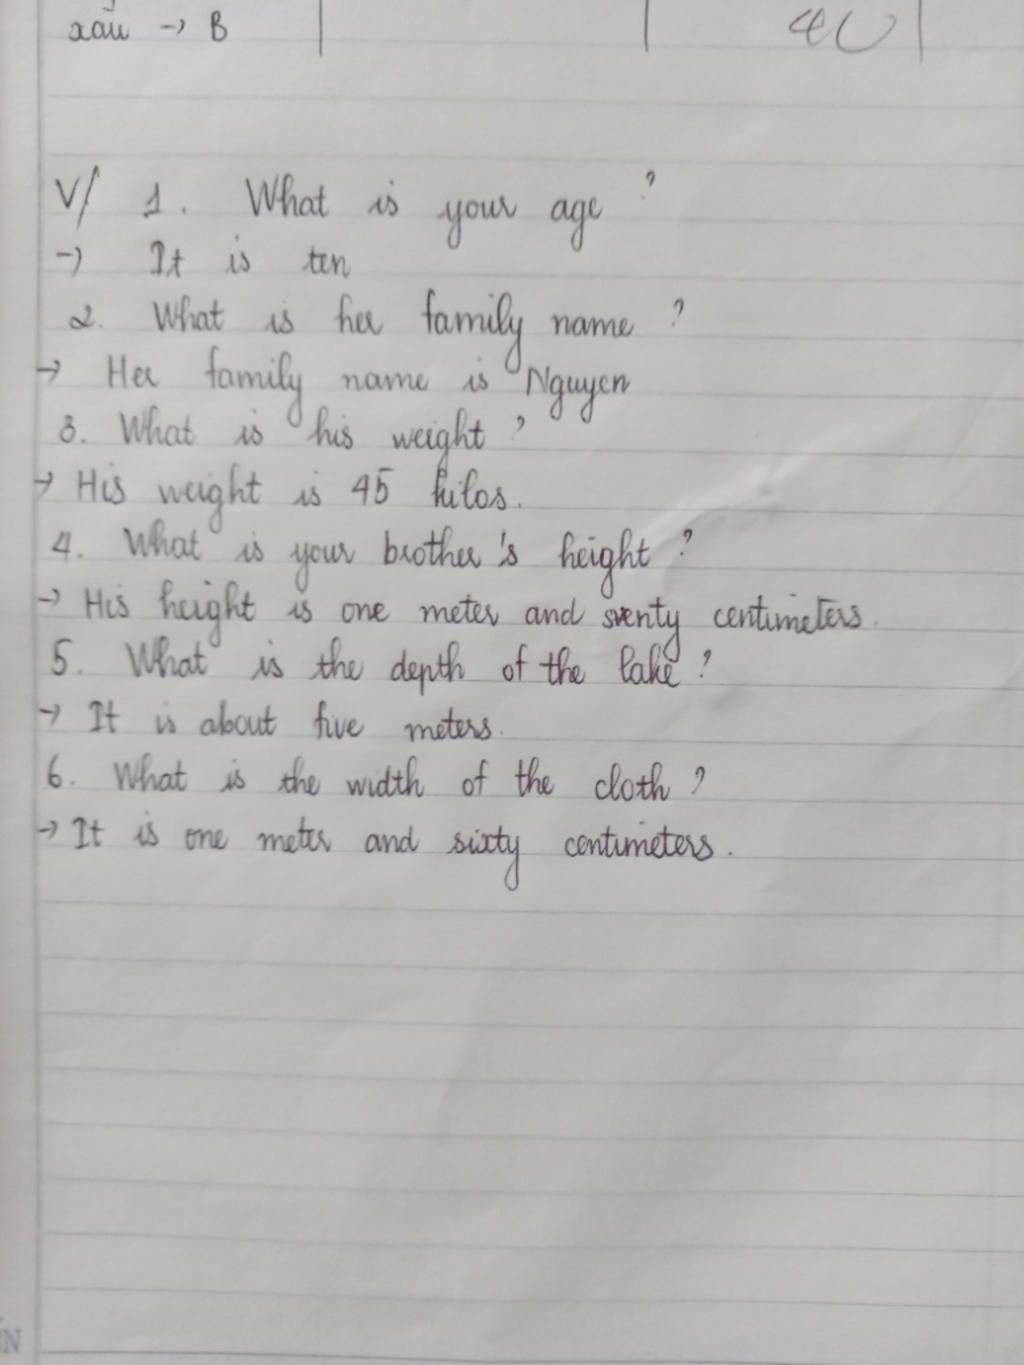 xấu → B
V/ 1. What is your age ?
→ It is ten
2. What is her family name ?
→ Her family name is Nguyen
3. What is his weight ?
→ His weight is 45 kilos.
4. What is your brother 's height ?
→ His height is one meter and sventy centimeters.
5. What is the depth of the lake ?
→ It is about five meters.
6. What is the width of the cloth ?
→ It is one meter and sixty centimeters.